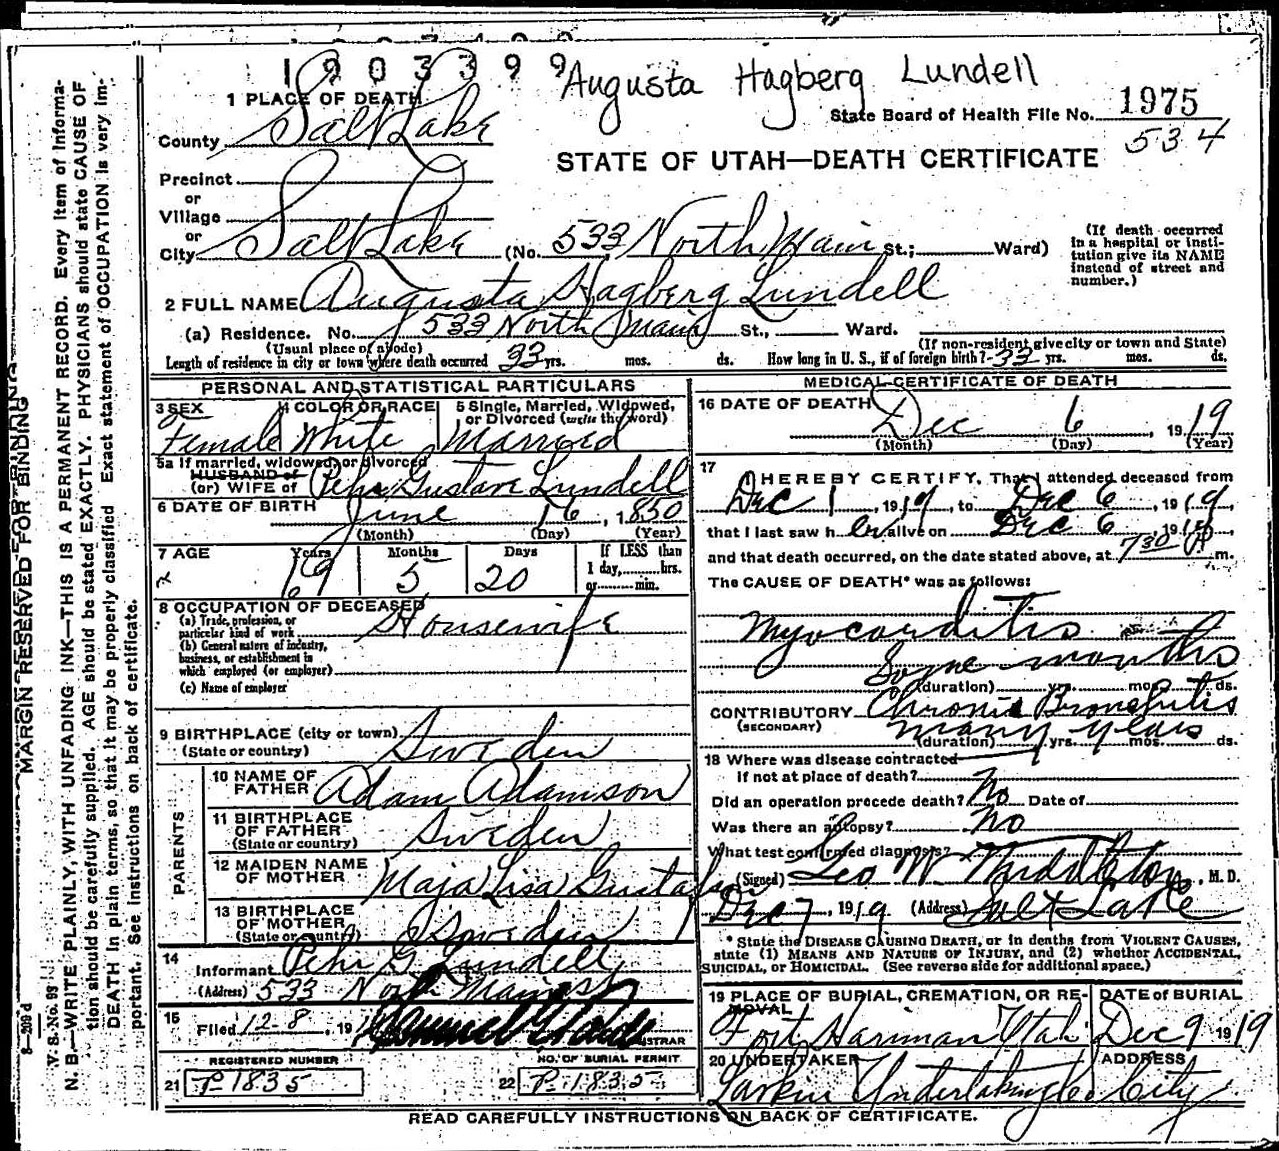 1903399
Augusta Hagberg Lundell
State Board of Health File No. 1975
534
STATE OF UTAH—DEATH CERTIFICATE
1 PLACE OF DEATH
County Salt Lake
Precinct
or
Village
or
City Salt Lake (No. 533 North Main St.; Ward)
(If death occurred in a hospital or insti-
tution give its NAME
instead of street and
number.)
2 FULL NAME Augusta Hagberg Lundell
(a) Residence. No. 533 North Main St., Ward.
(Usual place of abode) (If non-resident give city or town and State)
Length of residence in city or town where death occurred 33 yrs. mos. ds. How long in U. S., if of foreign birth? 33 yrs. mos. ds.
PERSONAL AND STATISTICAL PARTICULARS
3 SEX 4 COLOR OR RACE 5 Single, Married, Widowed,
or Divorced (write the word)
Female White Married
5a If married, widowed, or divorced
HUSBAND of
(or) WIFE of Pehr Gustave Lundell
6 DATE OF BIRTH June 16, 1850
(Month) (Day) (Year)
7 AGE Years Months Days If LESS than
1 day, hrs.
or min.
69 5 20
8 OCCUPATION OF DECEASED
(a) Trade, profession, or
particular kind of work Housewife
(b) General nature of industry,
business, or establishment in
which employed (or employer)
(c) Name of employer
9 BIRTHPLACE (city or town)
(State or country) Sweden
PARENTS
10 NAME OF
FATHER Adam Adamson
11 BIRTHPLACE
OF FATHER
(State or country) Sweden
12 MAIDEN NAME
OF MOTHER Maja Lisa Gustafson
13 BIRTHPLACE
OF MOTHER
(State or country) Sweden
14
Informant Pehr G. Lundell
(Address) 533 North Main st
15
Filed 12-8, 19
REGISTERED NUMBER
21 P 1835
NO. OF BURIAL PERMIT
22 P 1835
MEDICAL CERTIFICATE OF DEATH
16 DATE OF DEATH Dec 6, 1919
(Month) (Day) (Year)
17
I HEREBY CERTIFY, That I attended deceased from
Dec 1, 1919, to Dec 6, 1919,
that I last saw her alive on Dec 6 1919
and that death occurred, on the date stated above, at 7 30 P m.
The CAUSE OF DEATH* was as follows:
Myocarditis
Some months
(duration) yrs. mos. ds.
CONTRIBUTORY Chronic Bronchitis
(SECONDARY)
many years
(duration) yrs. mos. ds.
18 Where was disease contracted
if not at place of death?
Did an operation precede death? No Date of
Was there an autopsy? No
What test confirmed diagnosis?
(Signed) Geo W Middleton, M. D.
Dec 7, 1919 (Address) Salt Lake
* State the DISEASE CAUSING DEATH, or in deaths from VIOLENT CAUSES,
state (1) MEANS AND NATURE OF INJURY, and (2) whether ACCIDENTAL,
SUICIDAL, or HOMICIDAL. (See reverse side for additional space.)
19 PLACE OF BURIAL, CREMATION, OR RE-
MOVAL DATE OF BURIAL
Fort Hariman Utah Dec 9 1919
20 UNDERTAKER ADDRESS
Larkin Undertaking Co City
READ CAREFULLY INSTRUCTIONS ON BACK OF CERTIFICATE.
MARGIN RESERVED FOR BINDING
V. S. No. 93
N. B.—WRITE PLAINLY, WITH UNFADING INK—THIS IS A PERMANENT RECORD. Every item of informa-
tion should be carefully supplied. AGE should be stated EXACTLY. PHYSICIANS should state CAUSE OF
DEATH in plain terms, so that it may be properly classified. Exact statement of OCCUPATION is very im-
portant. See instructions on back of certificate.